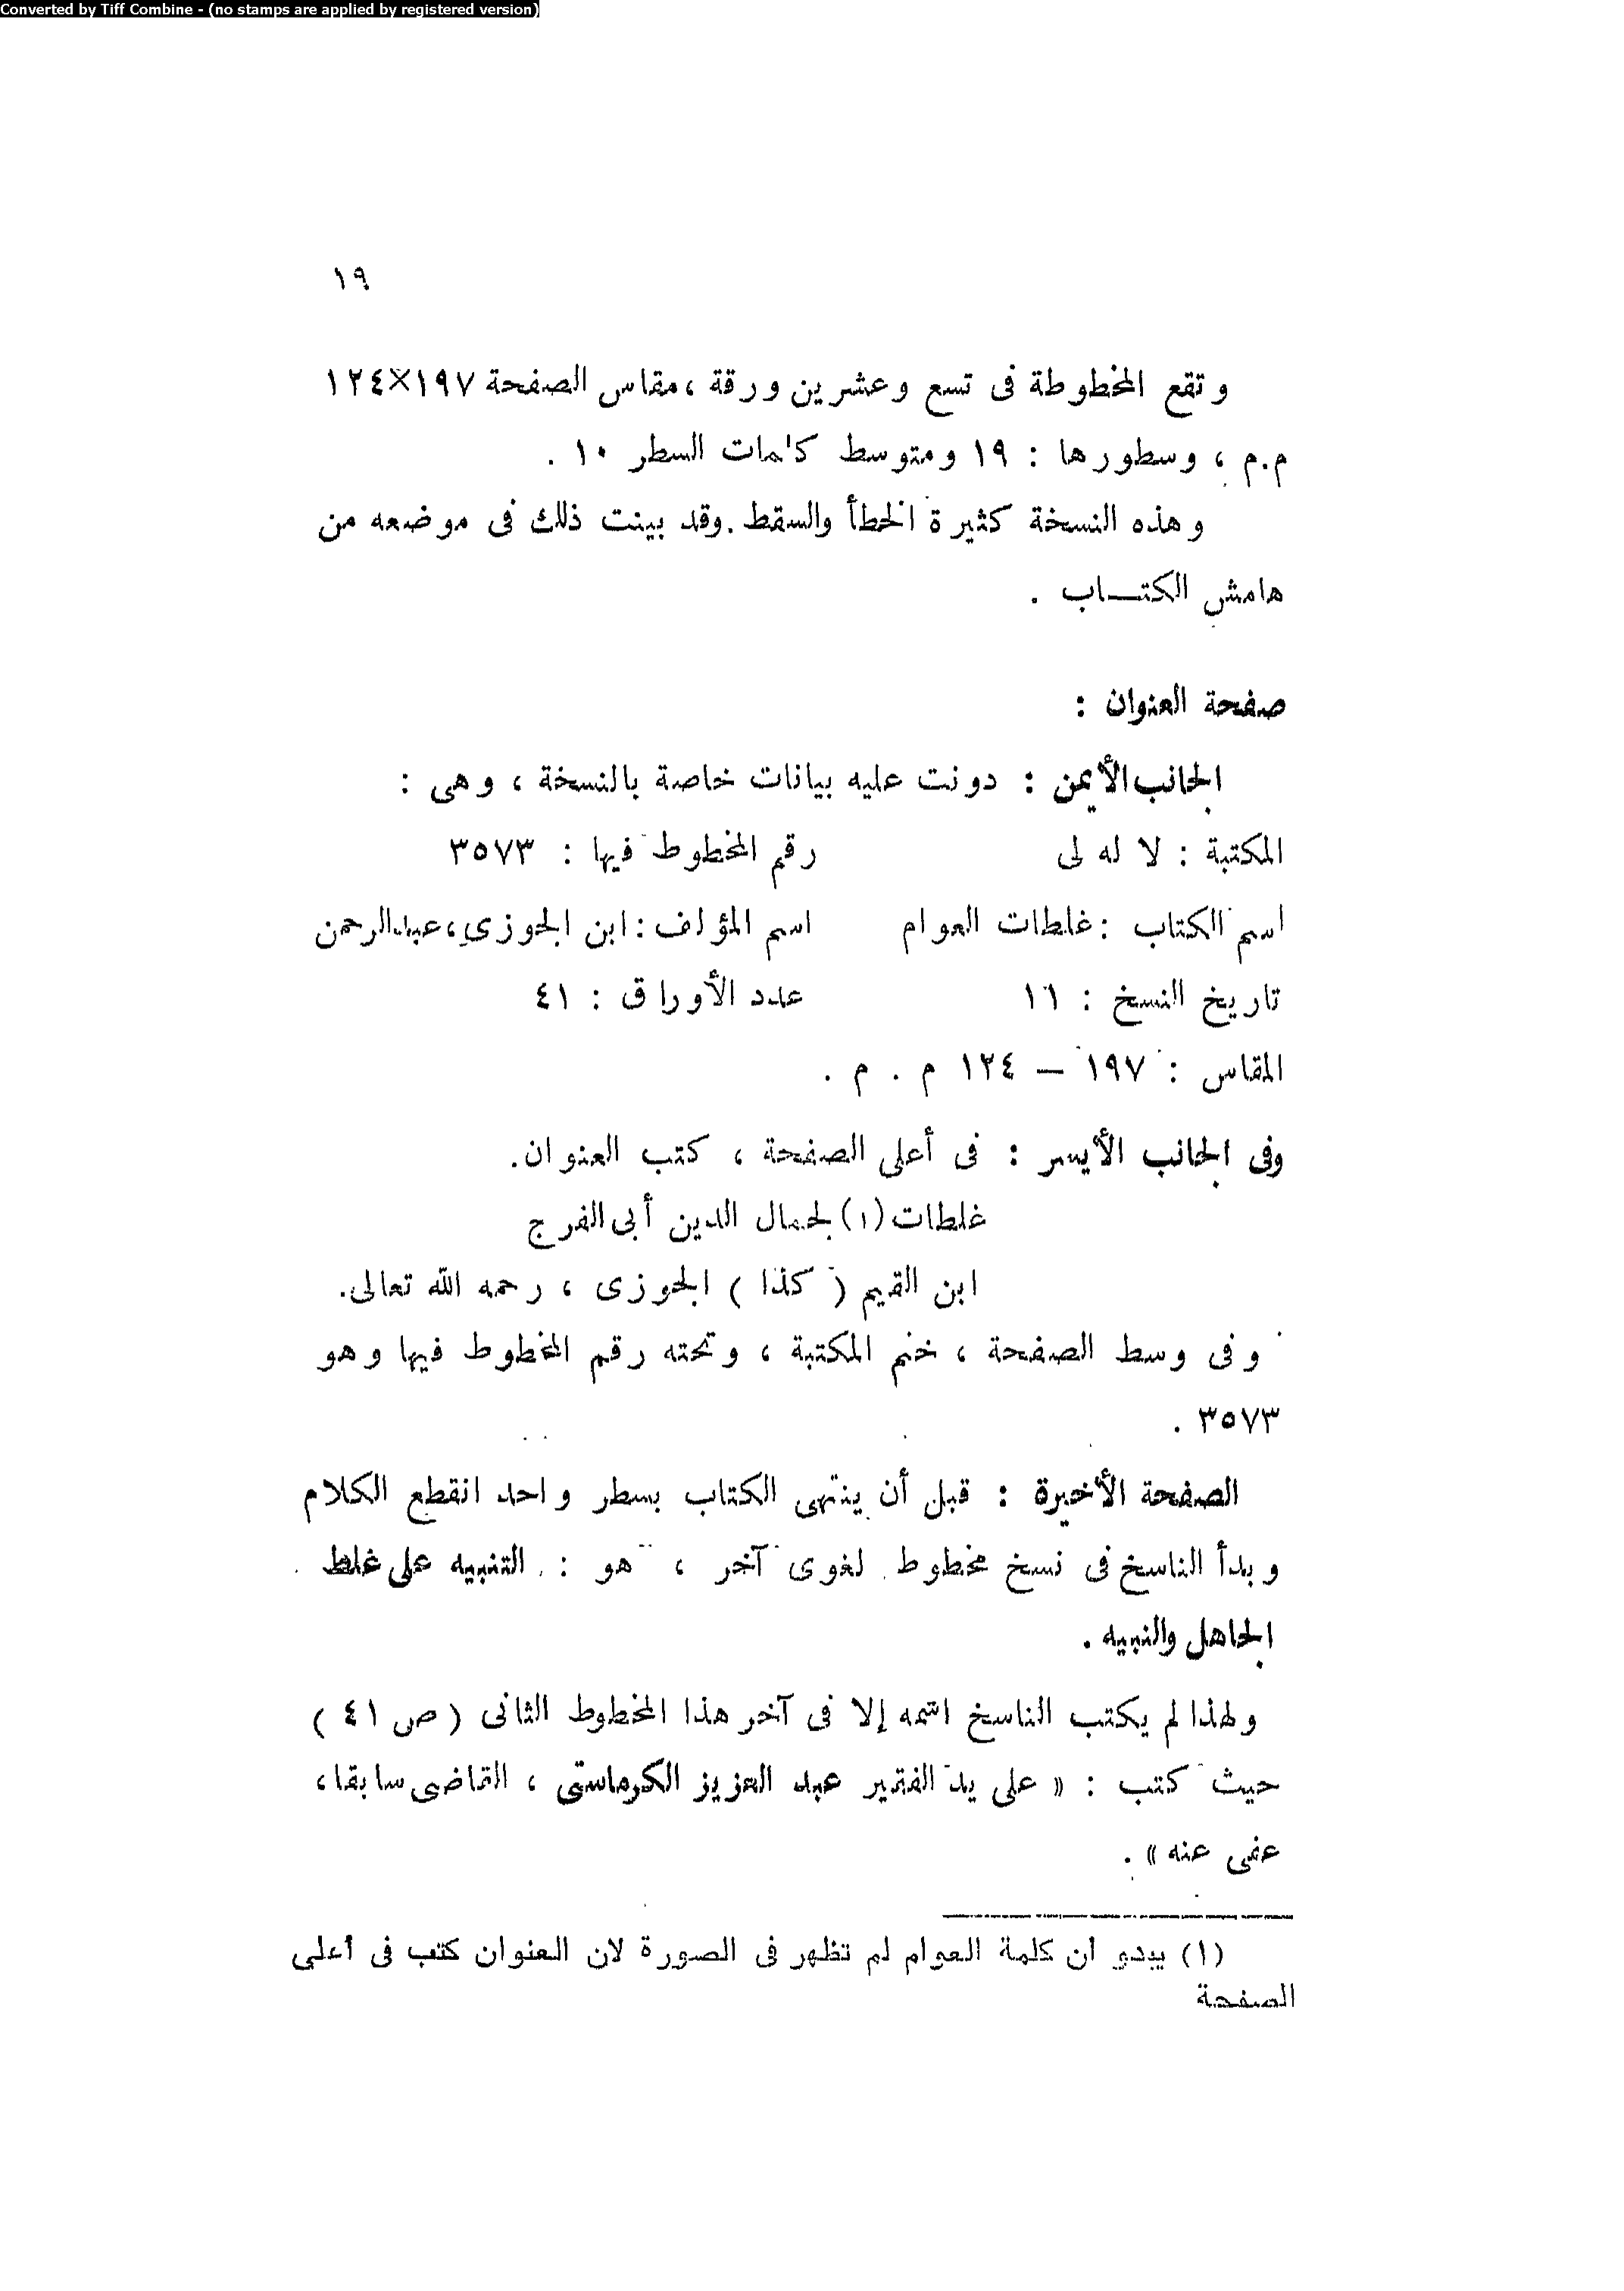 Converted by Tiff Combine - (no stamps are applied by registered version)
١٩
وتقع المخطوطة فى تسع وعشرين ورقة ، مقاس الصفحة ١٩٧×١٢٤
م.م ، وسطورها : ١٩ ومتوسط كلمات السطر ١٠ .
وهذه النسخة كثيرة الخطأ والسقط . وقد بينت ذلك فى موضعه من
هامش الكتـــاب .
صفحة العنوان :
الجانب الأيمن : دونت عليه بيانات خاصة بالنسخة ، وهى :
المكتبة : لا له لى رقم المخطوط فيها : ٣٥٧٣
اسم الكتاب : غلطات العوام اسم المؤلف : ابن الجوزى ، عبد الرحمن
تاريخ النسخ : ١٦ عدد الأوراق : ٤١
المقاس : ١٩٧ – ١٢٤ م . م .
وفى الجانب الأيسر : فى أعلى الصفحة ، كتب العنوان .
غلطات (١) لجمال الدين أبى الفرج
ابن القيم ( كذا ) الجوزى ، رحمه الله تعالى .
وفى وسط الصفحة ، ختم المكتبة ، وتحته رقم المخطوط فيها وهو
٣٥٧٣ .
الصفحة الأخيرة : قبل أن ينتهى الكتاب بسطر واحد انقطع الكلام
وبدأ الناسخ فى نسخ مخطوط لغوى آخر ، هو : التنبيه على غلط
الجاهل والنبيه .
ولهذا لم يكتب الناسخ اسمه إلا فى آخر هذا المخطوط الثانى ( ص ٤١ )
حيث كتب : « على يد الفقير عبد العزيز الكرماستى ، القاضى سابقا ،
عفى عنه » .
(١) يبدو أن كلمة العوام لم تظهر فى الصورة لان العنوان كتب فى أعلى
الصفحة